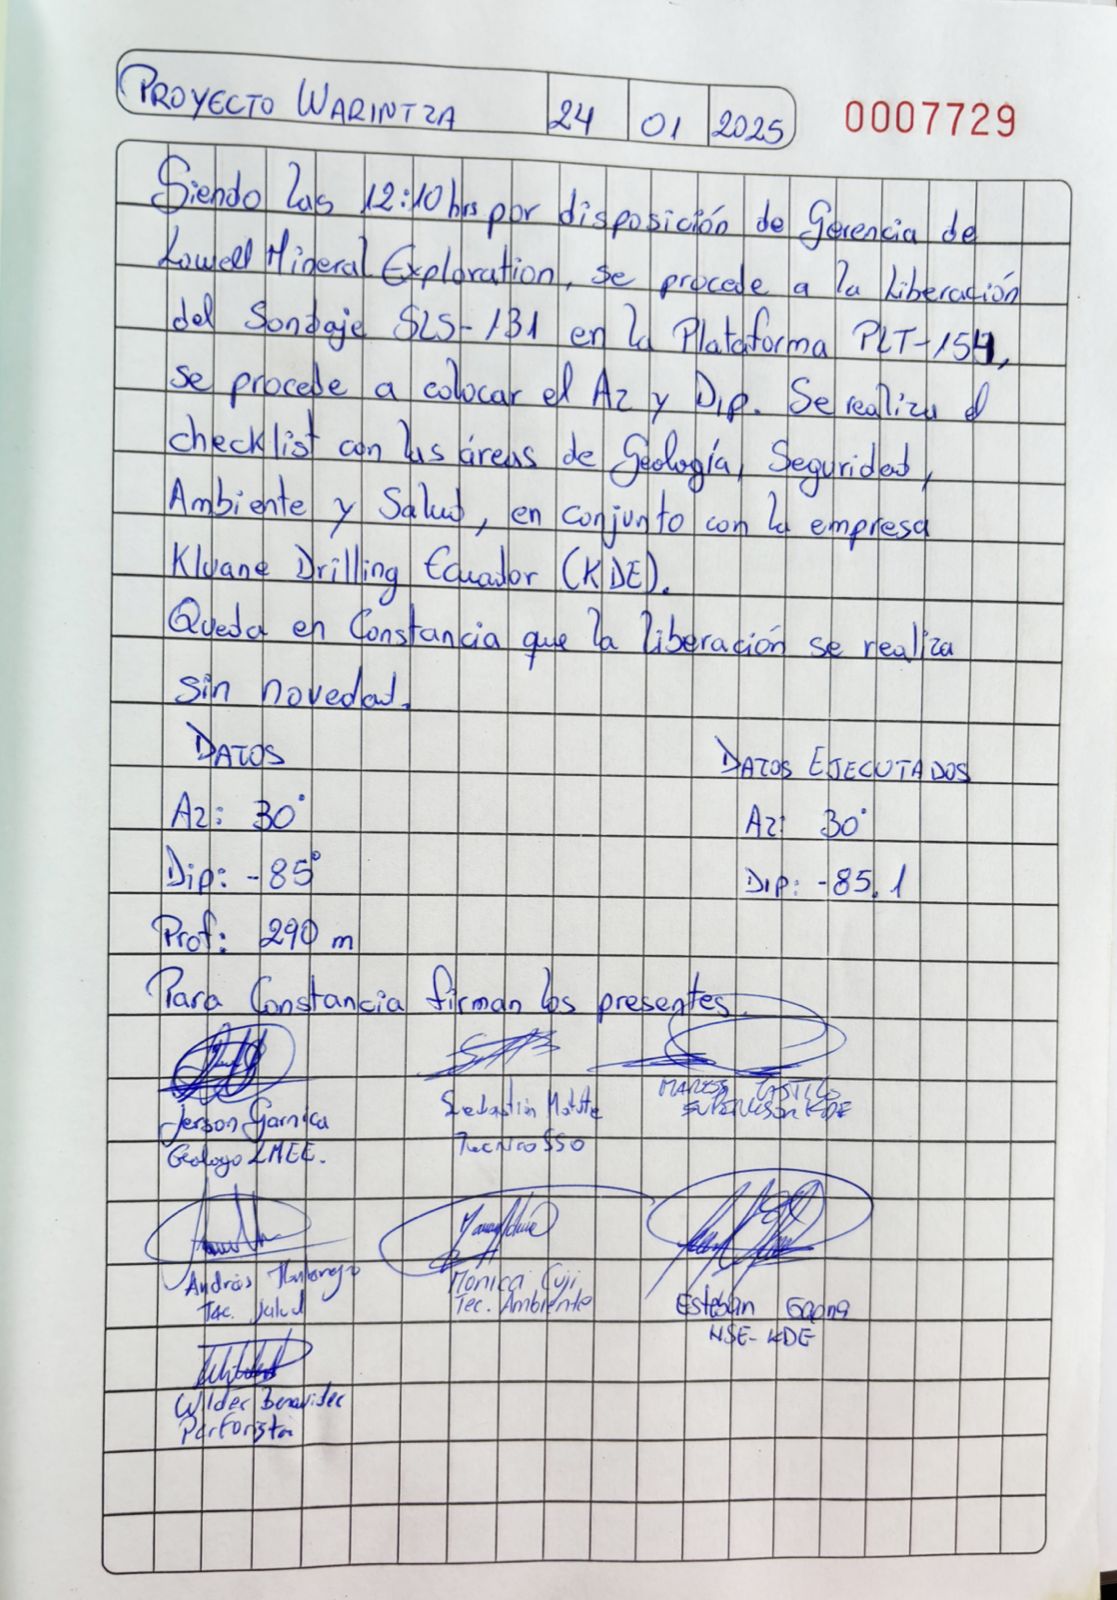 PROYECTO WARINTZA 24 01 2025 0007729
Siendo las 12:10 hrs por disposición de Gerencia de
Lowell Mineral Exploration, se procede a la Liberación
del Sondaje SLS-131 en la Plataforma PLT-154,
se procede a colocar el Az y Dip. Se realiza el
checklist con las áreas de Geología, Seguridad,
Ambiente y Salud, en conjunto con la empresa
Kluane Drilling Ecuador (KDE).
Queda en Constancia que la liberación se realiza
sin novedad.
DATOS DATOS EJECUTADOS
Az: 30° Az: 30°
Dip: -85° DIP: -85.1
Prof: 290 m
Para Constancia firman los presentes.
Jerson Garnica Sebastián Matute
Geologo LMEE. Tecnico SSO SUPERVISOR KDE
Andrés Monica Cuji Esteban Gaona
Tec. Salud Tec. Ambiente HSE-KDE
Wilder Benavides
Perforista